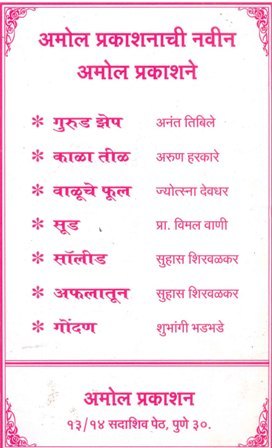 अमोल प्रकाशनाची नवीन
अमोल प्रकाशने
* गुरुड झेप अनंत तिबिले
* काळा तीळ अरुण हरकारे
* वाळूचे फूल ज्योत्स्ना देवधर
* सूड प्रा. विमल वाणी
* सॉलीड सुहास शिरवळकर
* अफलातून सुहास शिरवळकर
* गोंदण शुभांगी भडभडे
अमोल प्रकाशन
१३/१४ सदाशिव पेठ, पुणे ३०.